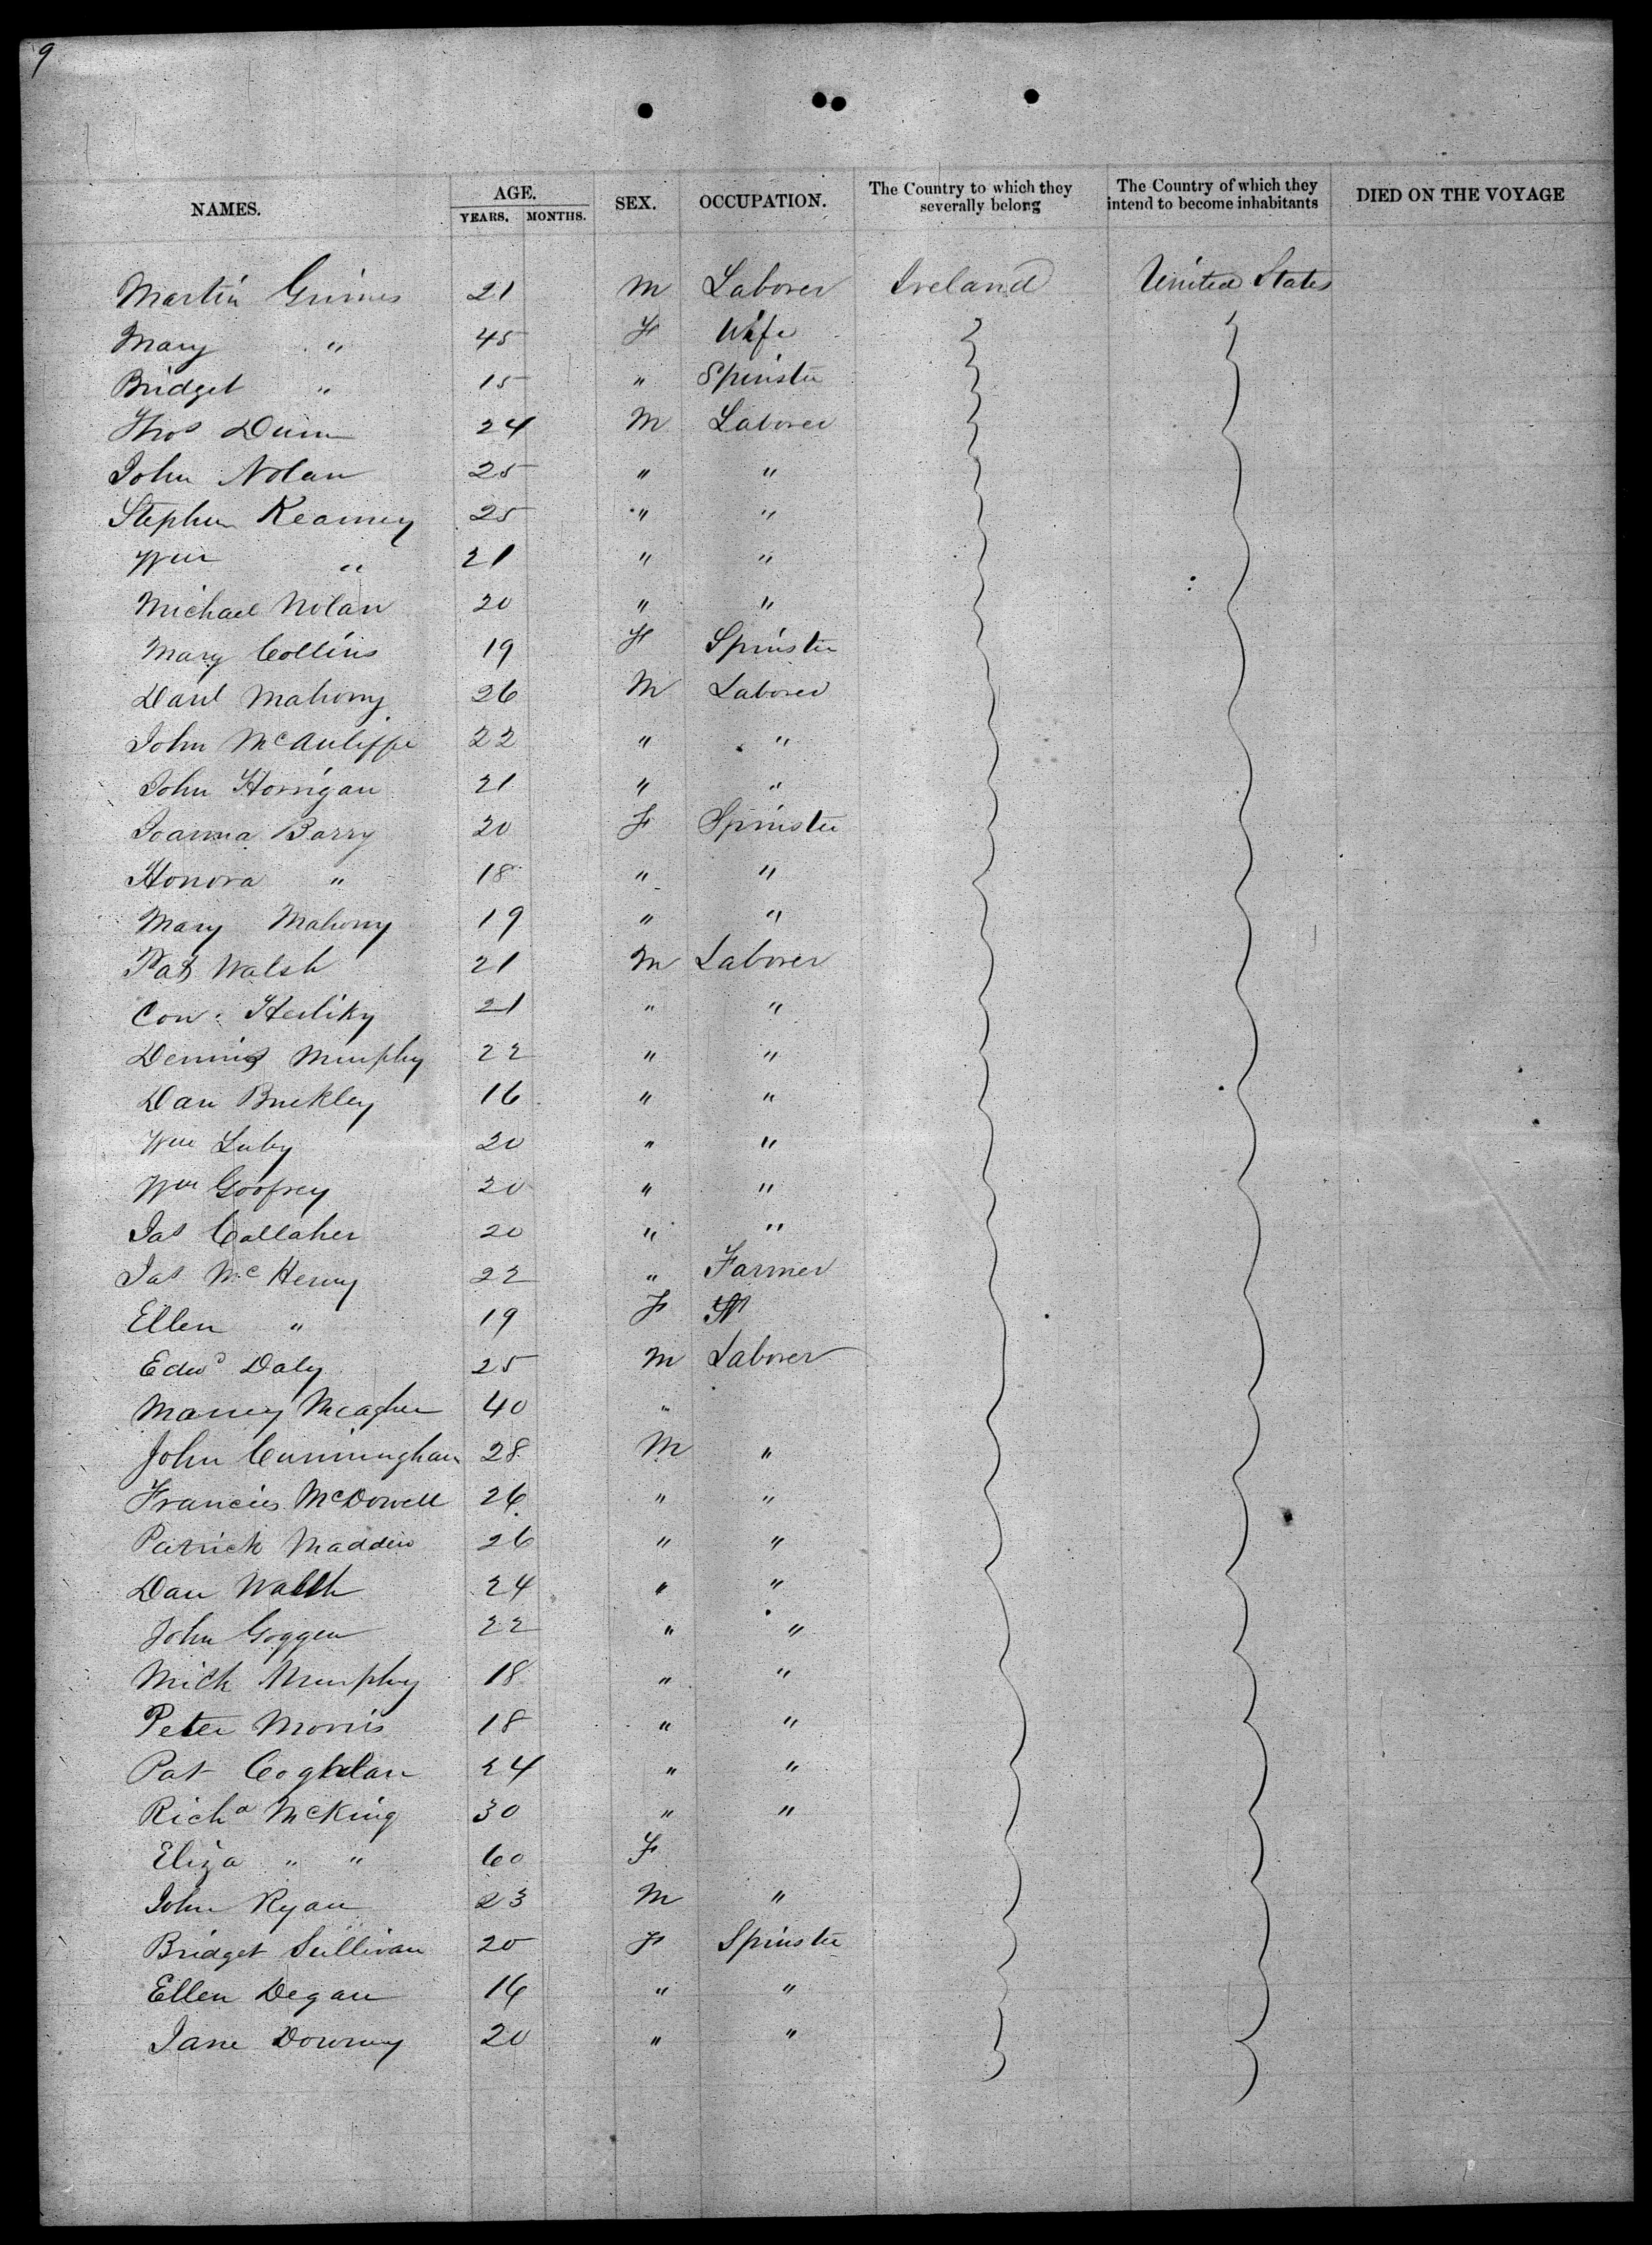 9
NAMES. AGE. YEARS. MONTHS. SEX. OCCUPATION. The Country to which they severally belong The Country of which they intend to become inhabitants DIED ON THE VOYAGE
Martin Grimes 21 M Laborer Ireland United States
Mary " 45 F Wife
Bridget " 15 " Spinster
Thos Dunn 24 M Laborer
John Nolan 25 " "
Stephen Kearney 25 " "
Wm " 21 " "
Michael Nolan 20 " "
Mary Collins 19 F Spinster
Danl Mahony 26 M Laborer
John McAuliffe 22 " "
John Horrigan 21 " "
Joanna Barry 20 F Spinster
Honora " 18 " "
Mary Mahony 19 " "
Pat Walsh 21 M Laborer
Con. Herliky 21 " "
Dennis Murphy 22 " "
Dan Buckley 16 " "
Wm Luby 20 " "
Wm Goofrey 20 " "
Jas Callaher 20 " "
Jas McHenry 22 " Farmer
Ellen " 19 F
Edwd Daly 25 M Laborer
Meagher 40 "
John Cunningham 28 M "
Francis McDowell 26 " "
Patrick Madden 26 " "
Dan Walsh 24 " "
John Goggen 22 " "
Mich Murphy 18 " "
Peter Morris 18 " "
Pat Coghlan 24 " "
Richd McKing 30 " "
Eliza " " 60 F
John Ryan 23 M "
Bridget Sullivan 20 F Spinster
Ellen Degan 16 " "
Jane Downey 20 " "